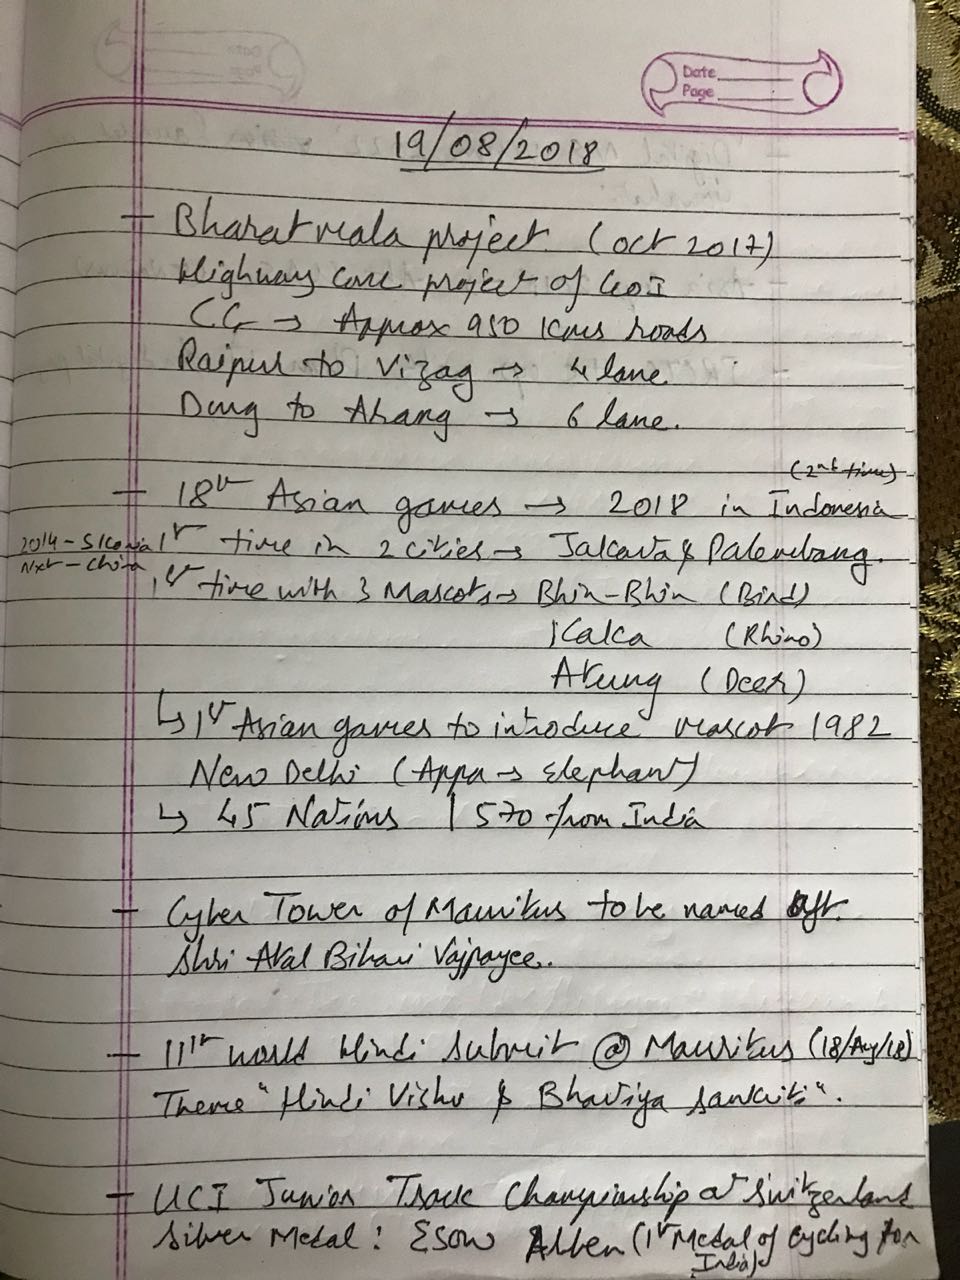 Date
Page
19/08/2018
- Bharatmala project (Oct 2017)
Highway Con project of GoI
CG → Approx 950 Kms roads
Raipur to Vizag → 4 lane
Durg to Arang → 6 lane.
(2nd time)
- 18th Asian games → 2018 in Indonesia
2014 - S Korea
Nxt - China
1st time in 2 cities → Jakarta & Palembang.
1st time with 3 Mascots → Bhin-Bhin (Bird)
Kaka (Rhino)
Atung (Deer)
↳ 1st Asian games to introduce mascot 1982
New Delhi (Appu → Elephant)
↳ 45 Nations | 570 from India
- Cyber Tower of Mauritus to be named aft.
Shri Atal Bihari Vajpayee.
- 11th world Hindi Submit @ Mauritus (18/Aug/18)
Theme "Hindi Vishv & Bhartiya Sankriti".
- UCI Junior Track Championship at Switzerland
Silver Medal : Esow Alben (1st Medal of Cycling for
India)